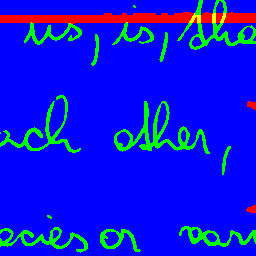 us, is, tha
ach other,
ecies or var